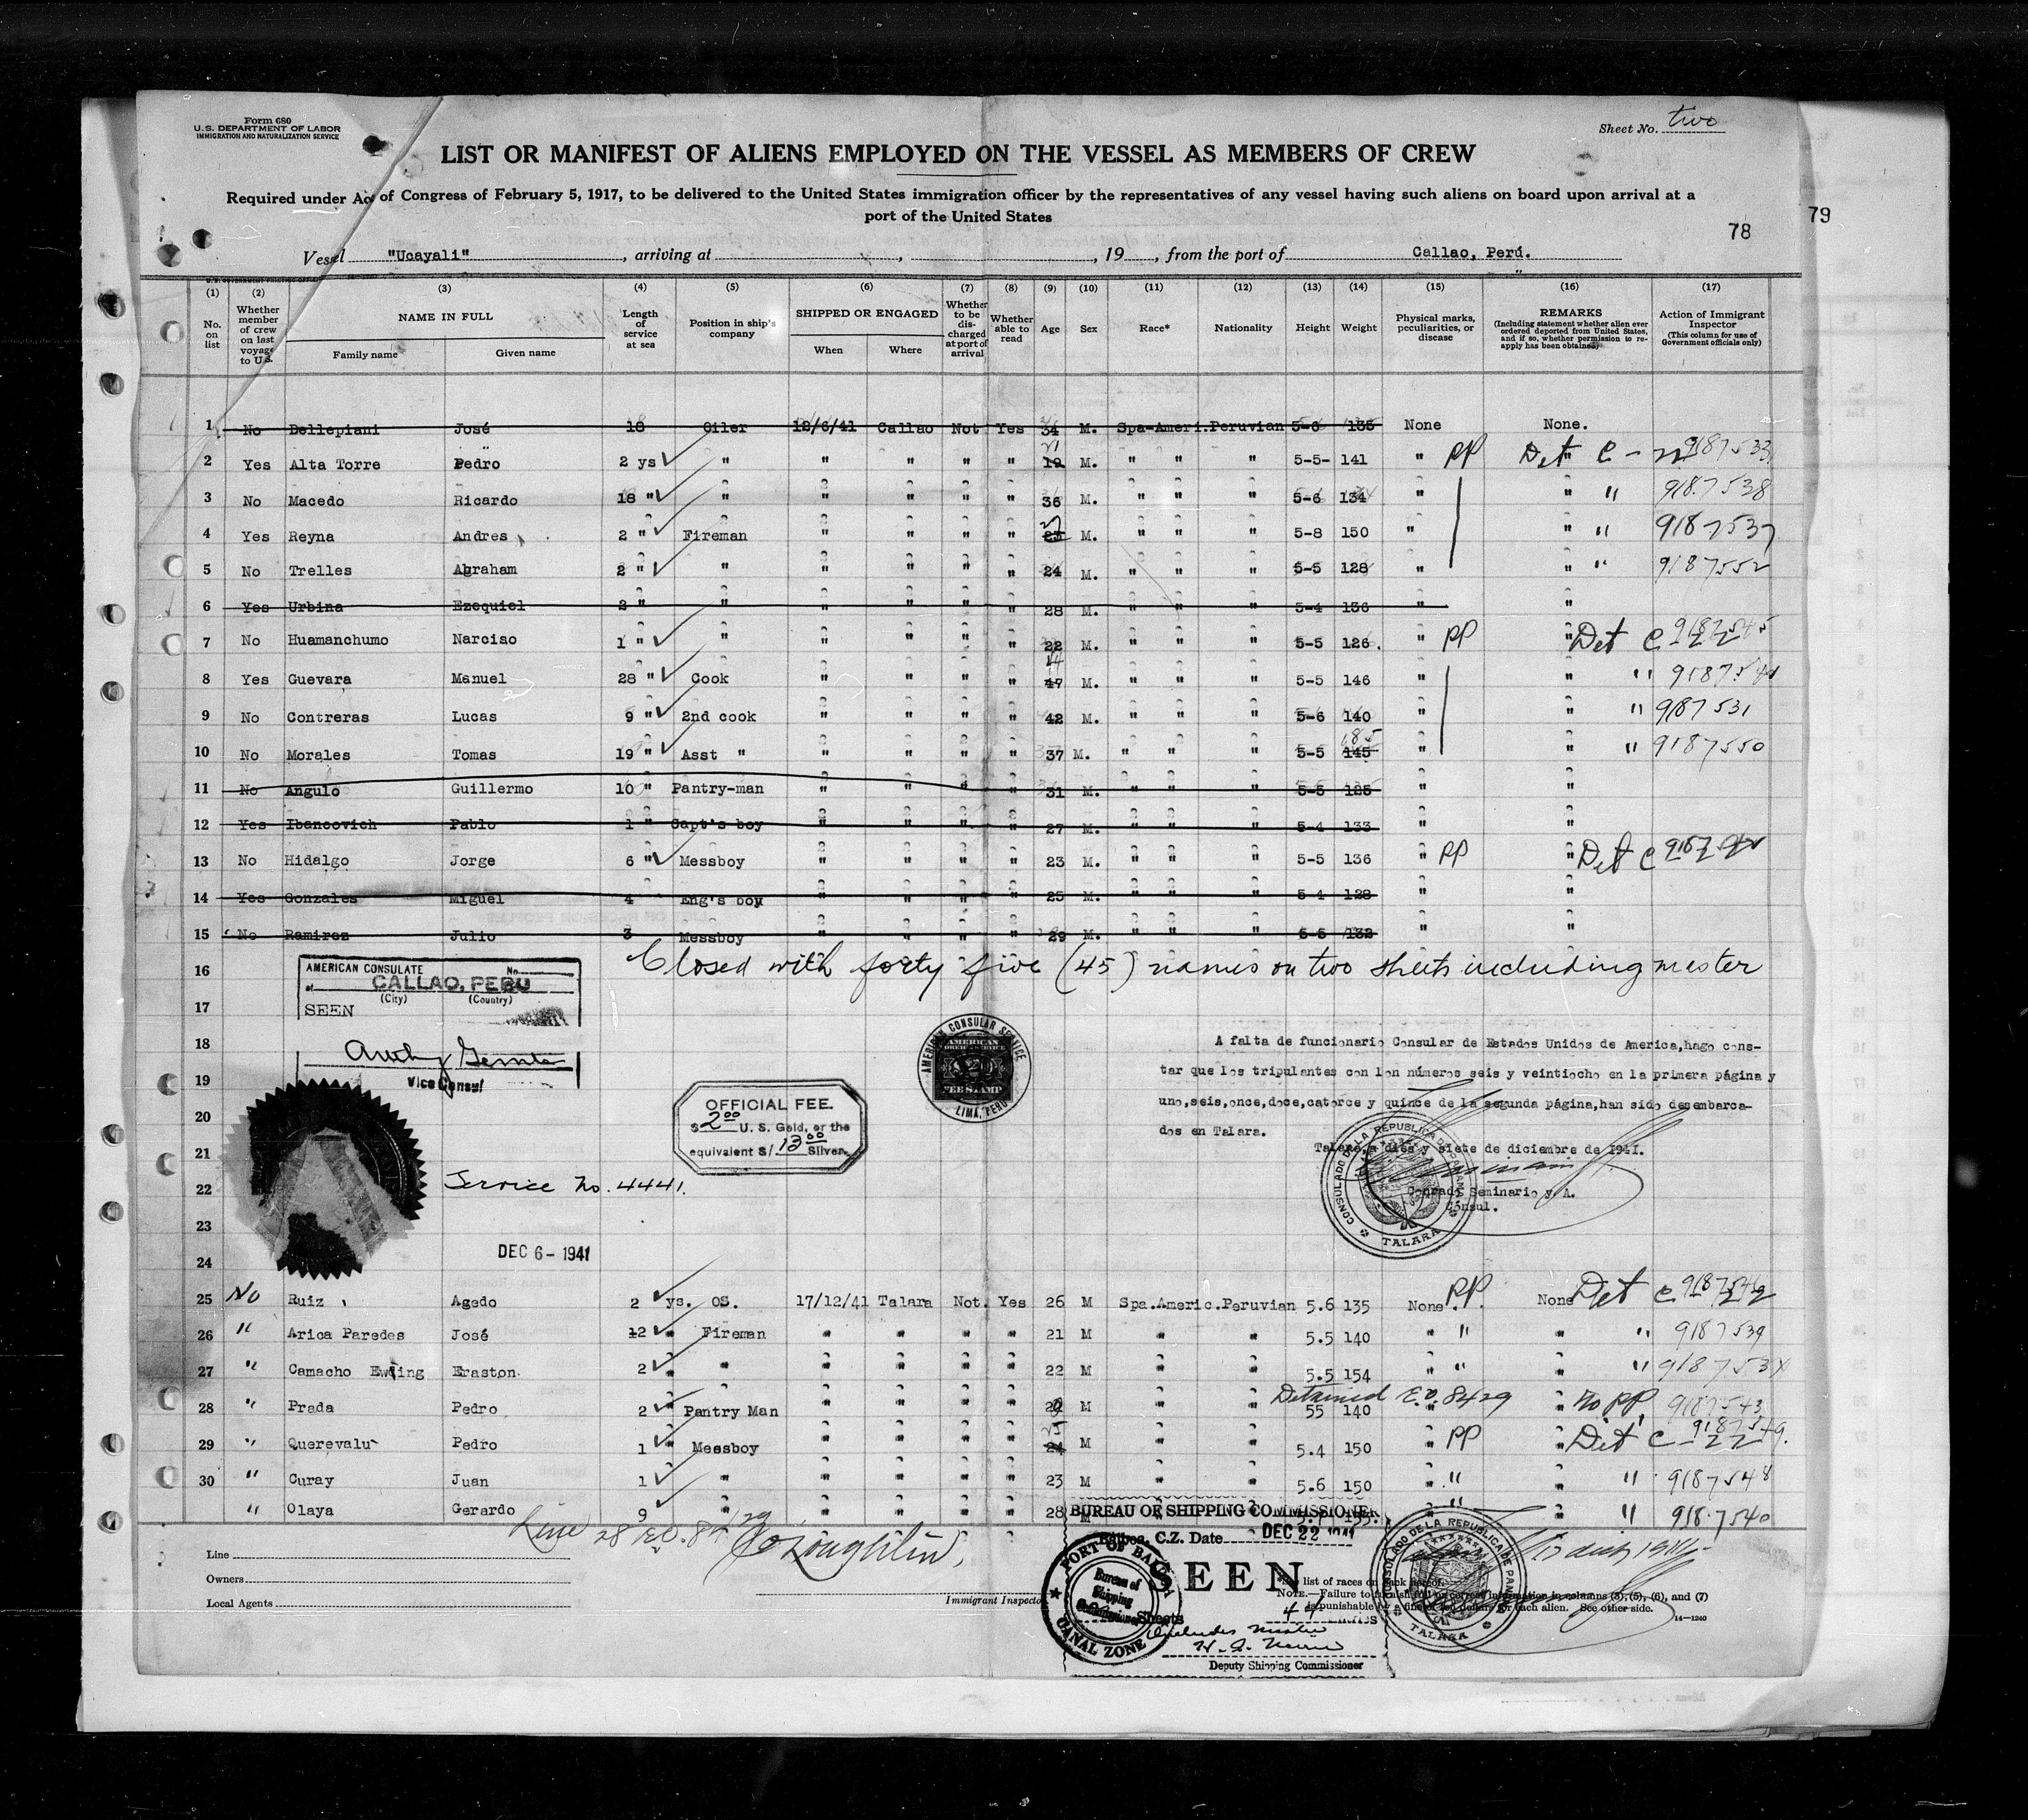 Form 680
U.S. DEPARTMENT OF LABOR
IMMIGRATION AND NATURALIZATION SERVICE
Sheet No. two
LIST OR MANIFEST OF ALIENS EMPLOYED ON THE VESSEL AS MEMBERS OF CREW
Required under Act of Congress of February 5, 1917, to be delivered to the United States immigration officer by the representatives of any vessel having such aliens on board upon arrival at a
port of the United States
78
79
Vessel "Ucayali", arriving at , , 19 , from the port of Callao, Perú.
(1) (2) (3) (4) (5) (6) (7) (8) (9) (10) (11) (12) (13) (14) (15) (16) (17)
No. on list
Whether member of crew on last voyage to U.S.
NAME IN FULL
Family name
Given name
Length of service at sea
Position in ship's company
SHIPPED OR ENGAGED
When
Where
Whether to be discharged at port of arrival
Whether able to read
Age
Sex
Race*
Nationality
Height
Weight
Physical marks, peculiarities, or disease
REMARKS
(Including statement whether alien ever ordered deported from United States, and if so, whether permission to reapply has been obtained)
Action of Immigrant Inspector
(This column for use of Government officials only)
1 No Dellepiani José 18 Oiler 12/6/41 Callao Not Yes 34 M. Spa-Ameri. Peruvian 5-6 135 None None.
2 Yes Alta Torre Pedro 2 ys " " " " " 19 21 M. " " " 5-5- 141 " PP Det C - 9187533
3 No Macedo Ricardo 18 " " " " " " 36 M. " " " 5-6 134 " " " 9187538
4 Yes Reyna Andres 2 " Fireman " " " " 23 27 M. " " " 5-8 150 " " " 9187537
5 No Trelles Abraham 2 " " " " " " 24 M. " " " 5-5 128 " " " 9187552
6 Yes Urbina Ezequiel 2 " " " " " " 28 M. " " " 5-4 136 " "
7 No Huamanchumo Narciso 1 " " " " " " 22 M. " " " 5-5 126. " PP " Det C 9187545
8 Yes Guevara Manuel 28 " Cook " " " " 47 44 M. " " " 5-5 146 " " "
9 No Contreras Lucas 9 " 2nd cook " " " " 42 M. " " " 5-6 140 " " " 9187531
10 No Morales Tomas 19 " Asst " " " " " 37 M. " " " 5-5 145 185 " " " 9187550
11 No Angulo Guillermo 10 " Pantry-man " " " " 31 M. " " " 5-5 125 " "
12 Yes Ibancovich Pablo 1 " Capt's boy " " " " 27 M. " " " 5-4 133 " "
13 No Hidalgo Jorge 6 " Messboy " " " " 23 M. " " " 5-5 136 " PP " Det C
14 Yes Gonzales Miguel 4 Eng's boy " " " " 25 M. " " " 5-4 128 " "
15 No Ramirez Julio 3 Messboy " " " " 29 M. " " " 5-5 132 " "
16 Closed with forty five (45) names on two sheets including master
17
18
19
20
21
22
23
24
AMERICAN CONSULATE No.
at CALLAO, PERU
(City) (Country)
SEEN
Vice Consul
AMERICAN CONSULAR SERVICE
AMERICAN
FEE STAMP
LIMA, PERU
OFFICIAL FEE.
$ 2.00 U. S. Gold, or the
equivalent S/ 13.00 Silver.
Service No. 4441.
DEC 6 - 1941
A falta de funcionario Consular de Estados Unidos de America,hago cons-
tar que los tripulantes con lon números seis y veintiocho en la primera página y
uno,seis,once,doce,catorce y quince de la segunda página,han sido desembarca-
dos en Talara.
Talara,a diez y siete de diciembre de 1941.
Conrado Seminario y. A.
Cónsul.
CONSULADO DE LA REPUBLICA DE PANAMA
TALARA
25 No Ruiz Agedo 2 ys. OS. 17/12/41 Talara Not. Yes 26 M Spa.Americ. Peruvian 5.6 135 None PP. None Det C
26 " Arica Paredes José 12 " Fireman " " " " 21 M " " 5.5 140 " " " " 9187539
27 " Camacho Ewing Eraston 2 " " " " " " 22 M " " 5.5 154 " " " "
28 " Prada Pedro 2 " Pantry Man " " " " M " " 55 140 Detained E.O. 8429 " No PP 9187543
29 " Querevalu Pedro 1 " Messboy " " " " 24 25 M " " 5.4 150 " PP " Det C - 9187549.
30 " Curay Juan 1 " " " " " 23 M " " 5.6 150 " " " " 9187548
" Olaya Gerardo 9 " " " " " 28 M " " 5.4 135. " " " " 9187540
Line 28 E.O. 8429
O'Loughlin,
Line
Owners
Local Agents
Immigrant Inspector
BUREAU OF SHIPPING COMMISSIONER
Balboa, C.Z. Date DEC 22 1941
SEEN
Sheets
44
includes master
Deputy Shipping Commissioner
PORT OF BALBOA
Bureau of
Shipping
Commissioner
CANAL ZONE
*See list of races on back hereof.
NOTE.—Failure to furnish full or correct information in columns (3), (5), (6), and (7)
is punishable by a fine of ten dollars for each alien. See other side.
14—1240
CONSULADO DE LA REPUBLICA DE PANAMA
TALARA